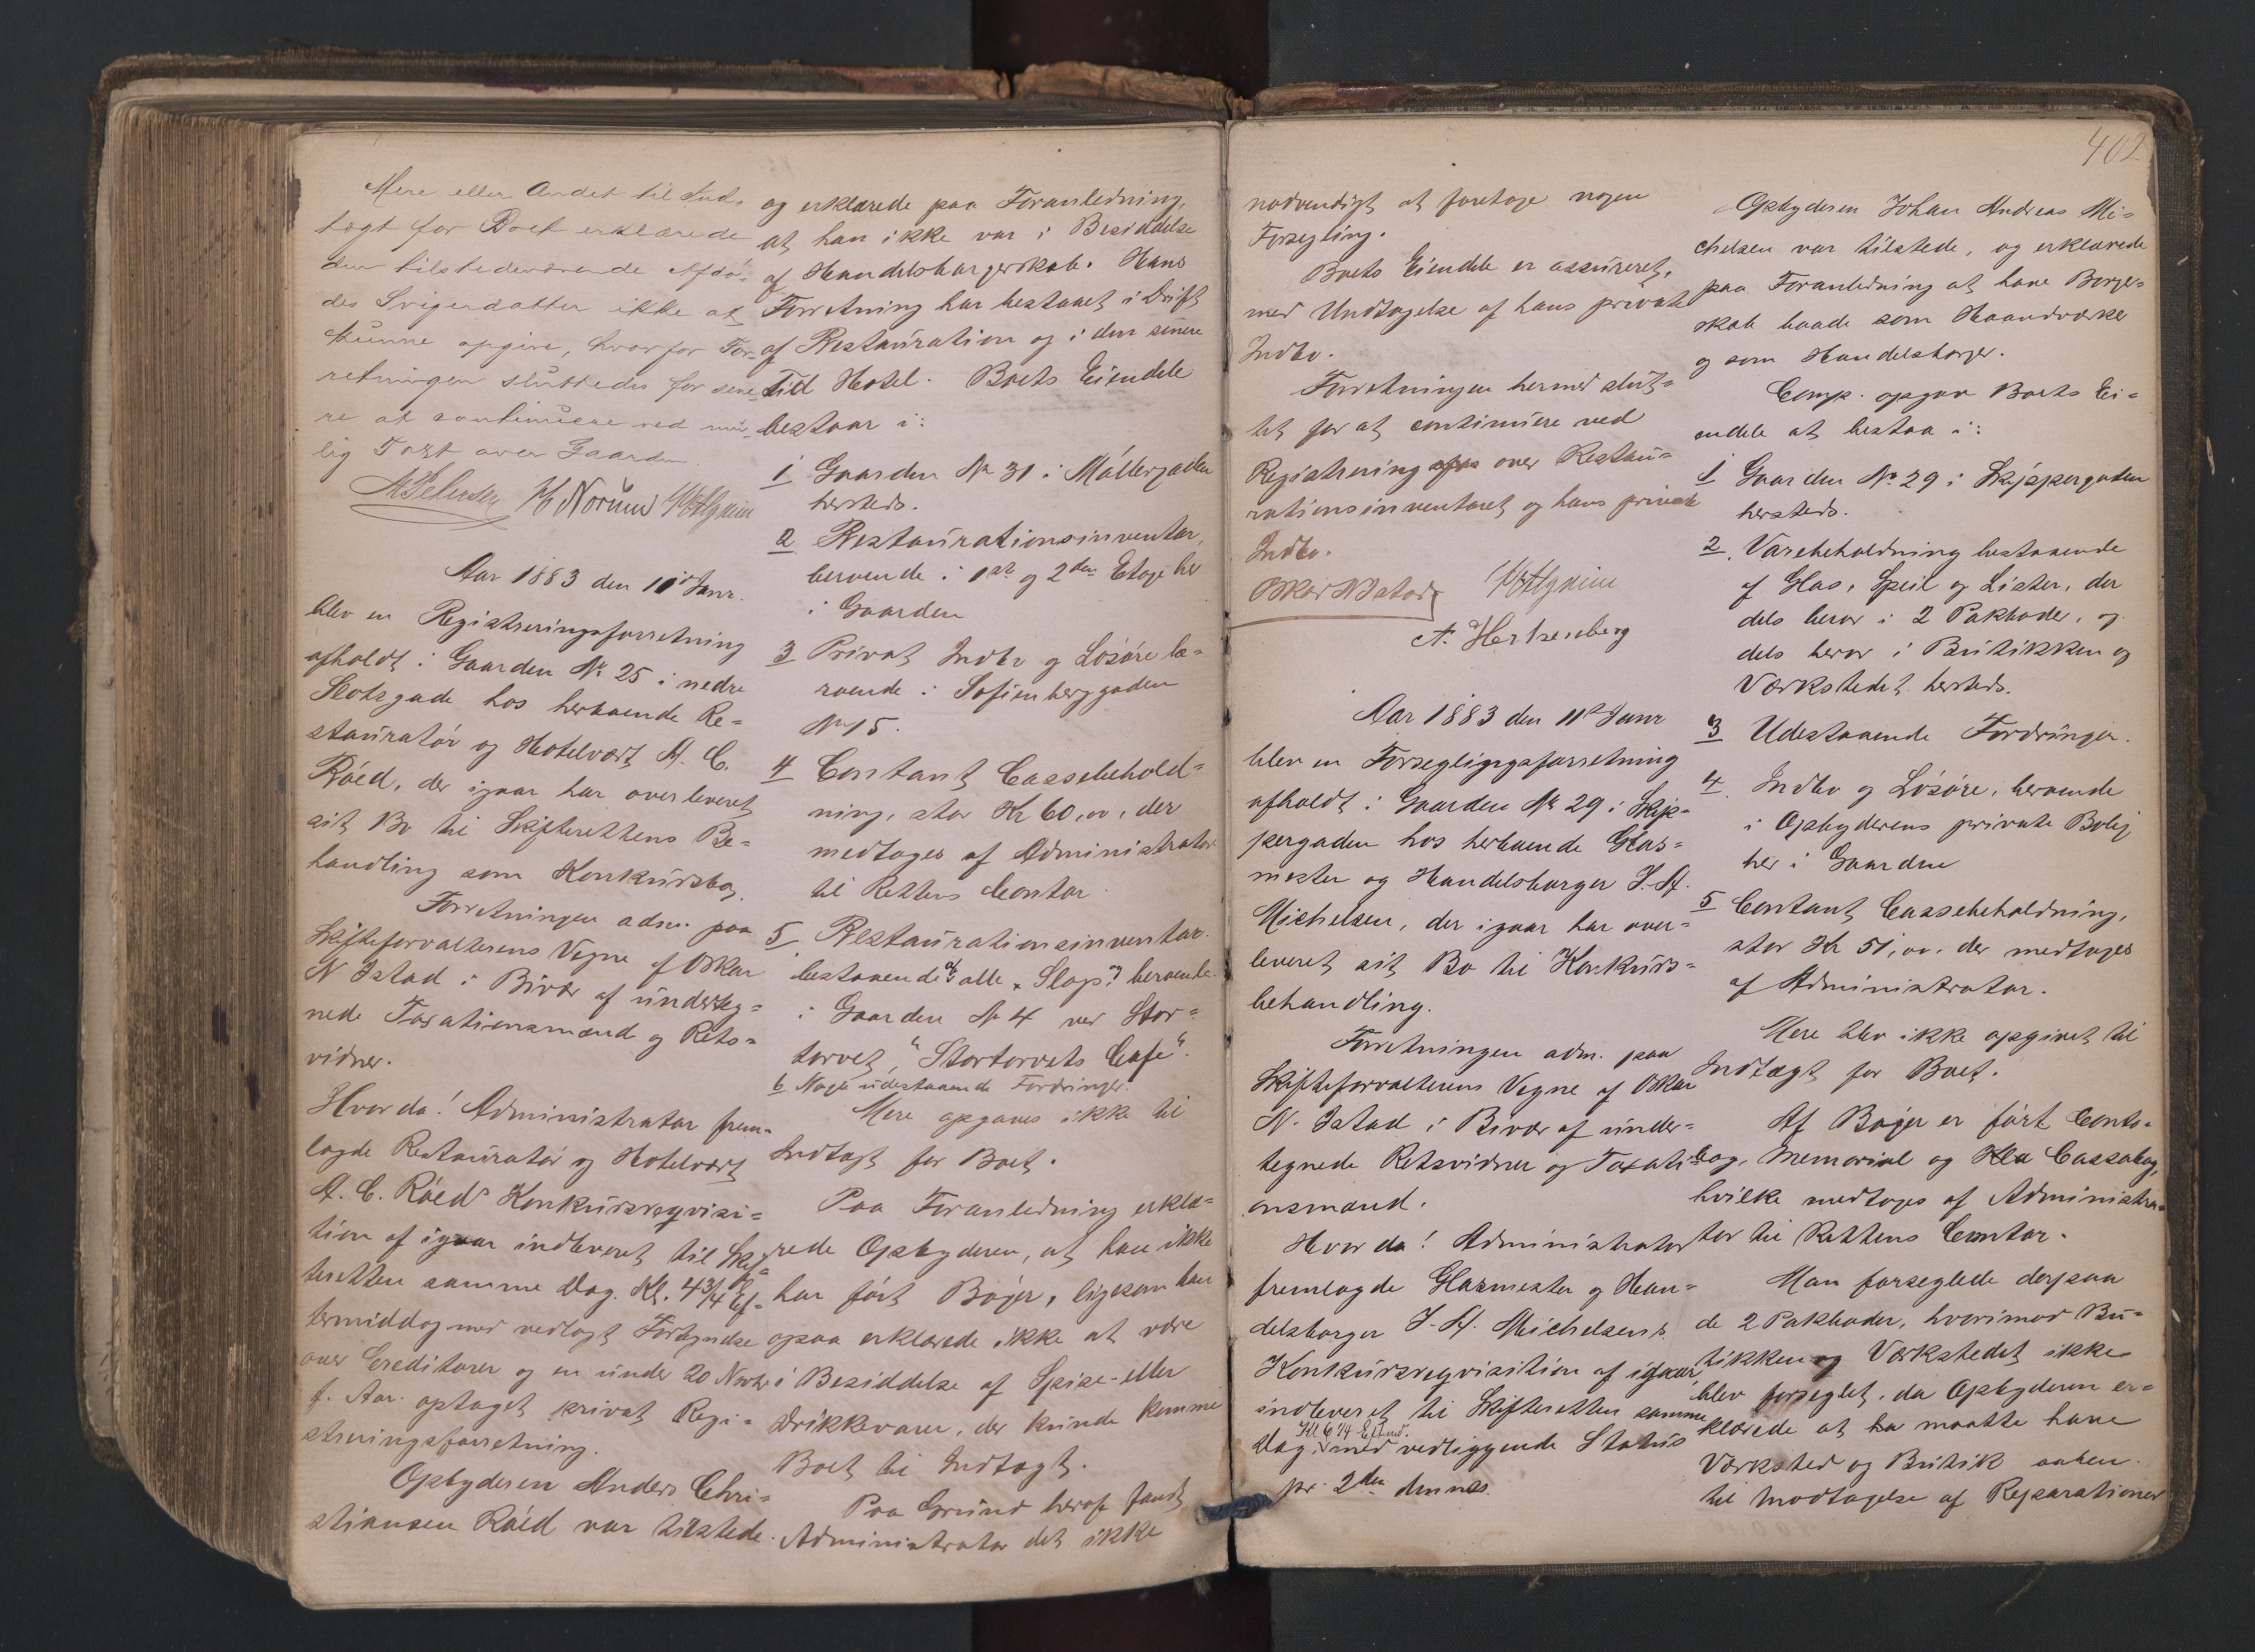 Mere eller Andet til Ind-
tægt for Boet erklærede
den tilstedeværende Afdø-
des Svigerdatter ikke at
kunne opgive, hvorfor For-
retningen sluttedes for sene-
re at continuere ved mu-
lig Taxt over Gaarden.
H Norum
Aar 1883 den 11te Janr.
blev en Registreringsforretning
afholdt i Gaarden No 25 i nedre
Slotsgade hos herboende Re-
stauratør og Hotelvært A. C.
Röed, der igaar har overleveret
sit Bo til Skifterettens Be-
handling som Konkursbo.
Forretningen adm. paa
Skifteforvalterens Vegne af Oskar
N Istad i Bivær af underteg-
nede Taxationsmænd og Rets-
vidner.
Hvor da! Administrator frem-
lagde Restauratør og Hotelvært
A. C. Röeds Konkursreqvisi-
tion af igaar indleveret til Skif-
teretten samme Dag. Kl. 4 3/4 Ef-
termiddag med vedlagt Fortegnelse
over Creditorer og en under 20 Novbr
f. Aar. optaget privat Regi-
streringsforretning.
Opbyderen Anders Chri-
stiansen Röed var tilstede
og erklærede paa Foranledning,
at han ikke var i Besiddelse
af Handelsborgerskab. Hans
Forretning har bestaaet i Drift
af Restauration og i den senere
Tid Hotel. Boets Eiendele
bestaar i:
1 Gaarden No 31 i Møllergaden
hersteds.
2 Restaurationsinventar,
beroende i 1ste og 2den Etage her
i Gaarden
3 Privat Indbo og Løsøre be-
roende i Sofienberggaden
No 15.
4 Contant Cassebehold-
ning, stor Kr 60,00, der
medtoges af Administrator
til Rettens Contor.
5 Restaurationsinventar.
bestaaende af alle Slags beroende
i Gaarden No 4 ved Stor-
torvet, "Stortorvets Café".
6 Nogle udestaaende Fordringer.
Mere opgaves ikke til
Indtægt for Boet.
Paa Foranledning erklæ-
rede Opbyderen, at han ikke
har ført Bøger, ligesom han
ogsaa erklærede ikke at være
i Besiddelse af Spise- eller
Drikkevarer, der kunde komme
Boet til Indtægt.
Paa Grund heraf fandt
Administrator det ikke
402
nødvendigt at foretage nogen
Forsegling.
Boets Eiendele er assureret,
med Undtagelse af hans private
Indbo.
Forretningen hermed slut-
tet for at continuere ved
Registrering over Restau-
rationsinventaret og hans private
Indbo.
Oskar N Istad
A. Hertzenberg
Aar 1883 den 11te Janr
blev en Forseglingsforretning
afholdt i Gaarden No 29 i Skip-
pergaden hos herboende Glas-
mester og Handelsborger J. A.
Michelsen, der igaar har over-
leveret sit Bo til Konkurs-
behandling.
Forretningen adm. paa
Skifteforvalterens Vegne af Oskar
N. Istad i Bivær af under-
tegnede Retsvidner og Taxati-
onsmænd.
Hvor da! Administrator
fremlagde Glasmester og Han-
delsborger J. A. Michelsens
Konkursreqvisition af igaar,
indleveret til Skifteretten samme
Kl 6 1/4 Efterm.
Dag, med vedliggende Status
pr. 2den dennes.
Opbyderen Johan Andreas Mi-
chelsen var tilstede, og erklærede
paa Foranledning at have Borger-
skab baade som Haandværker
og som Handelsborger.
Comp. opgav Boets Ei-
endele at bestaa i:
1 Gaarden No 29 i Skippergaden
hersteds.
2. Varebeholdning bestaaende
af Glas, Speil og Lister, der
dels beror i 2 Pakboder, og
dels beror i Butikken og
Værkstedet hersteds.
3 Udestaaende Fordringer.
4. Indbo og Løsøre, beroende
i Opbyderens private Bolig
her i Gaarden
5 Contant Cassebeholdning,
stor Kr 51,00. der medtoges
af Administrator.
Mere blev ikke opgivet til
Indtægt for Boet.
Af Bøger er ført Conto-
bog, Memorial og Kla Cassabog,
hvilke medtoges af Administra-
tor til Rettens Contor.
Man forseglede derpaa
de 2 Pakboder, hvorimod Bu-
tikken og Værkstedet ikke
blev forseglet, da Opbyderen er-
klærede at ha maatte have
Værksted og Butik aaben
til Modtagelse af Reparationer